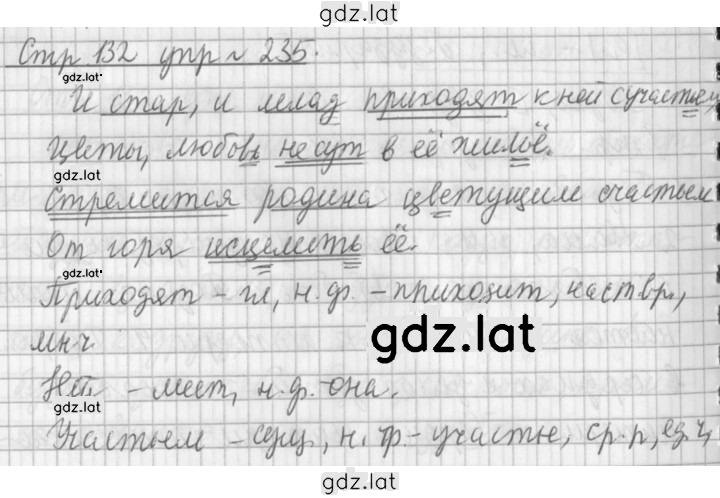 gdz.lat
Стр 132 упр № 235.
gdz.lat
И стар, и млад приходят к ней с участьем
Цветы, любовь несут в её жильё.
gdz.lat
Стремится родина цветущим счастьем
От горя исцелить её.
gdz.lat
Приходят - гл, н.ф. - приходит, наст вр,
мн.ч
gdz.lat
Ней - мест, н.ф. - она.
gdz.lat
Участьем - сущ, н.ф - участье, ср.р, ед.ч,
gdz.lat